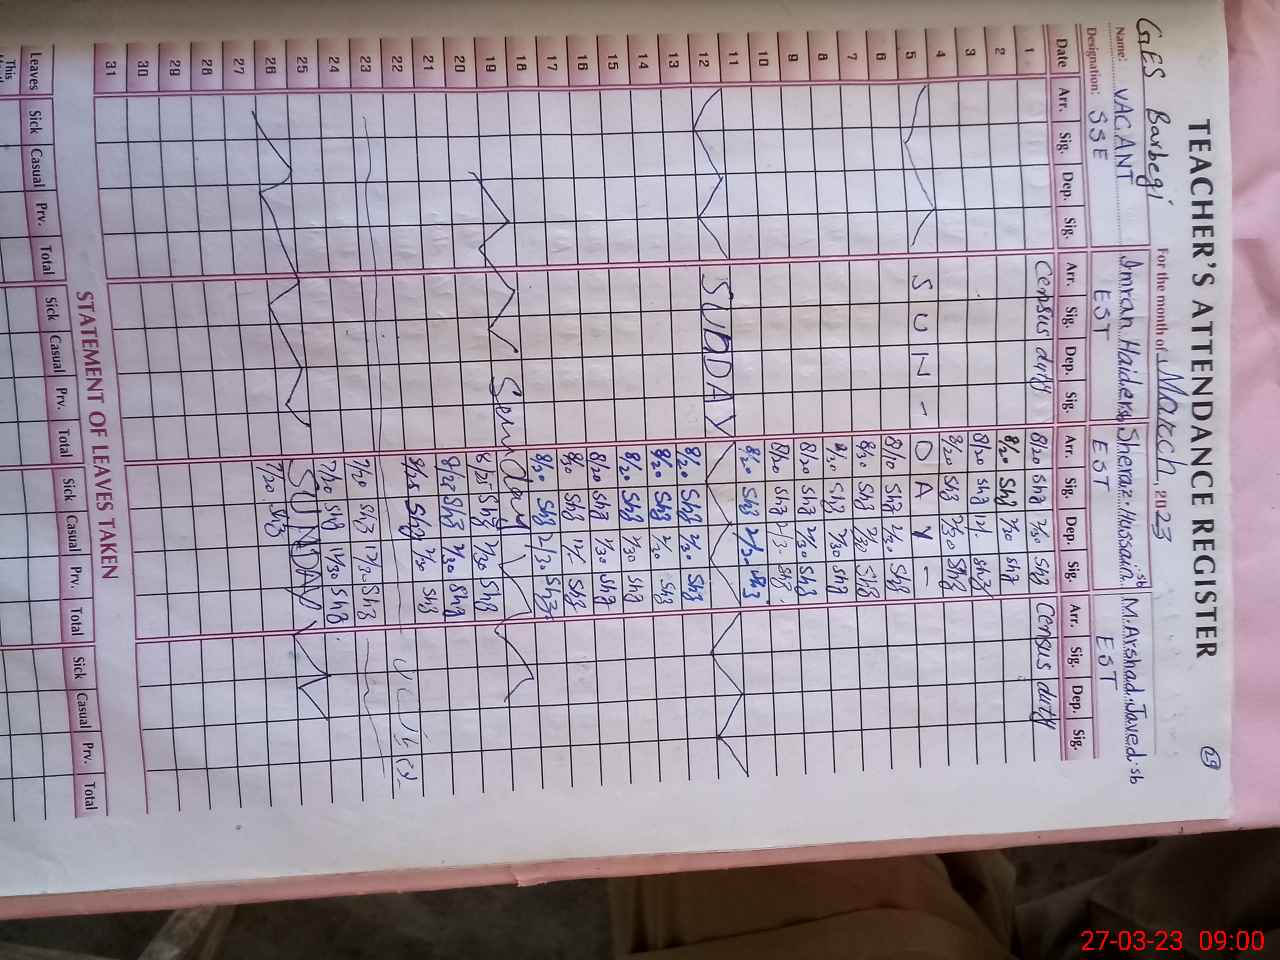 TEACHER'S ATTENDANCE REGISTER
29
GES Barbegi
For the month of March, 2023
Name: VACANT Imran Haider sb Sheraz Hussain sb M. Arshad Javed sb
Designation: SSE EST EST EST
Date Arr. Sig. Dep. Sig. Arr. Sig. Dep. Sig. Arr. Sig. Dep. Sig. Arr. Sig. Dep. Sig.
1 Census duty 8/20 Shz 2/30 Shz Census duty
2 8/20 Shz 2/30 Shz
3 8/20 Shz 12/. Shz
4 8/20 Shz 2/30 Shz
5 S U N - D A Y -
6 8/10 Shz 2/30 Shz
7 8/20 Shz 2/30 Shz
8 8/20 Shz 2/30 Shz
9 8/20 Shz 2/30 Shz
10 8/20 Shz 2/30 Shz
11 8/20 Shz 2/30 Shz
12 SUNDAY
13 8/20 Shz 2/30 Shz
14 8/20 Shz 2/20 Shz
15 8/20 Shz 1/30 Shz
16 8/20 Shz 1/30 Shz
17 8/20 Shz 12/. Shz
18 8/20 Shz 2/30 Shz
19 Sunday
20 8/25 Shz 2/30 Shz
21 8/25 Shz 2/30 Shz
22 8/25 Shz 2/30 Shz
23
24 7/20 Shz 12/30 Shz
25 7/20 Shz 1/30 Shz
26 SUNDAY
27 7/20 Shz
28
29
30
31
STATEMENT OF LEAVES TAKEN
Leaves Sick Casual Prv. Total Sick Casual Prv. Total Sick Casual Prv. Total Sick Casual Prv. Total
This
27-03-23 09:00